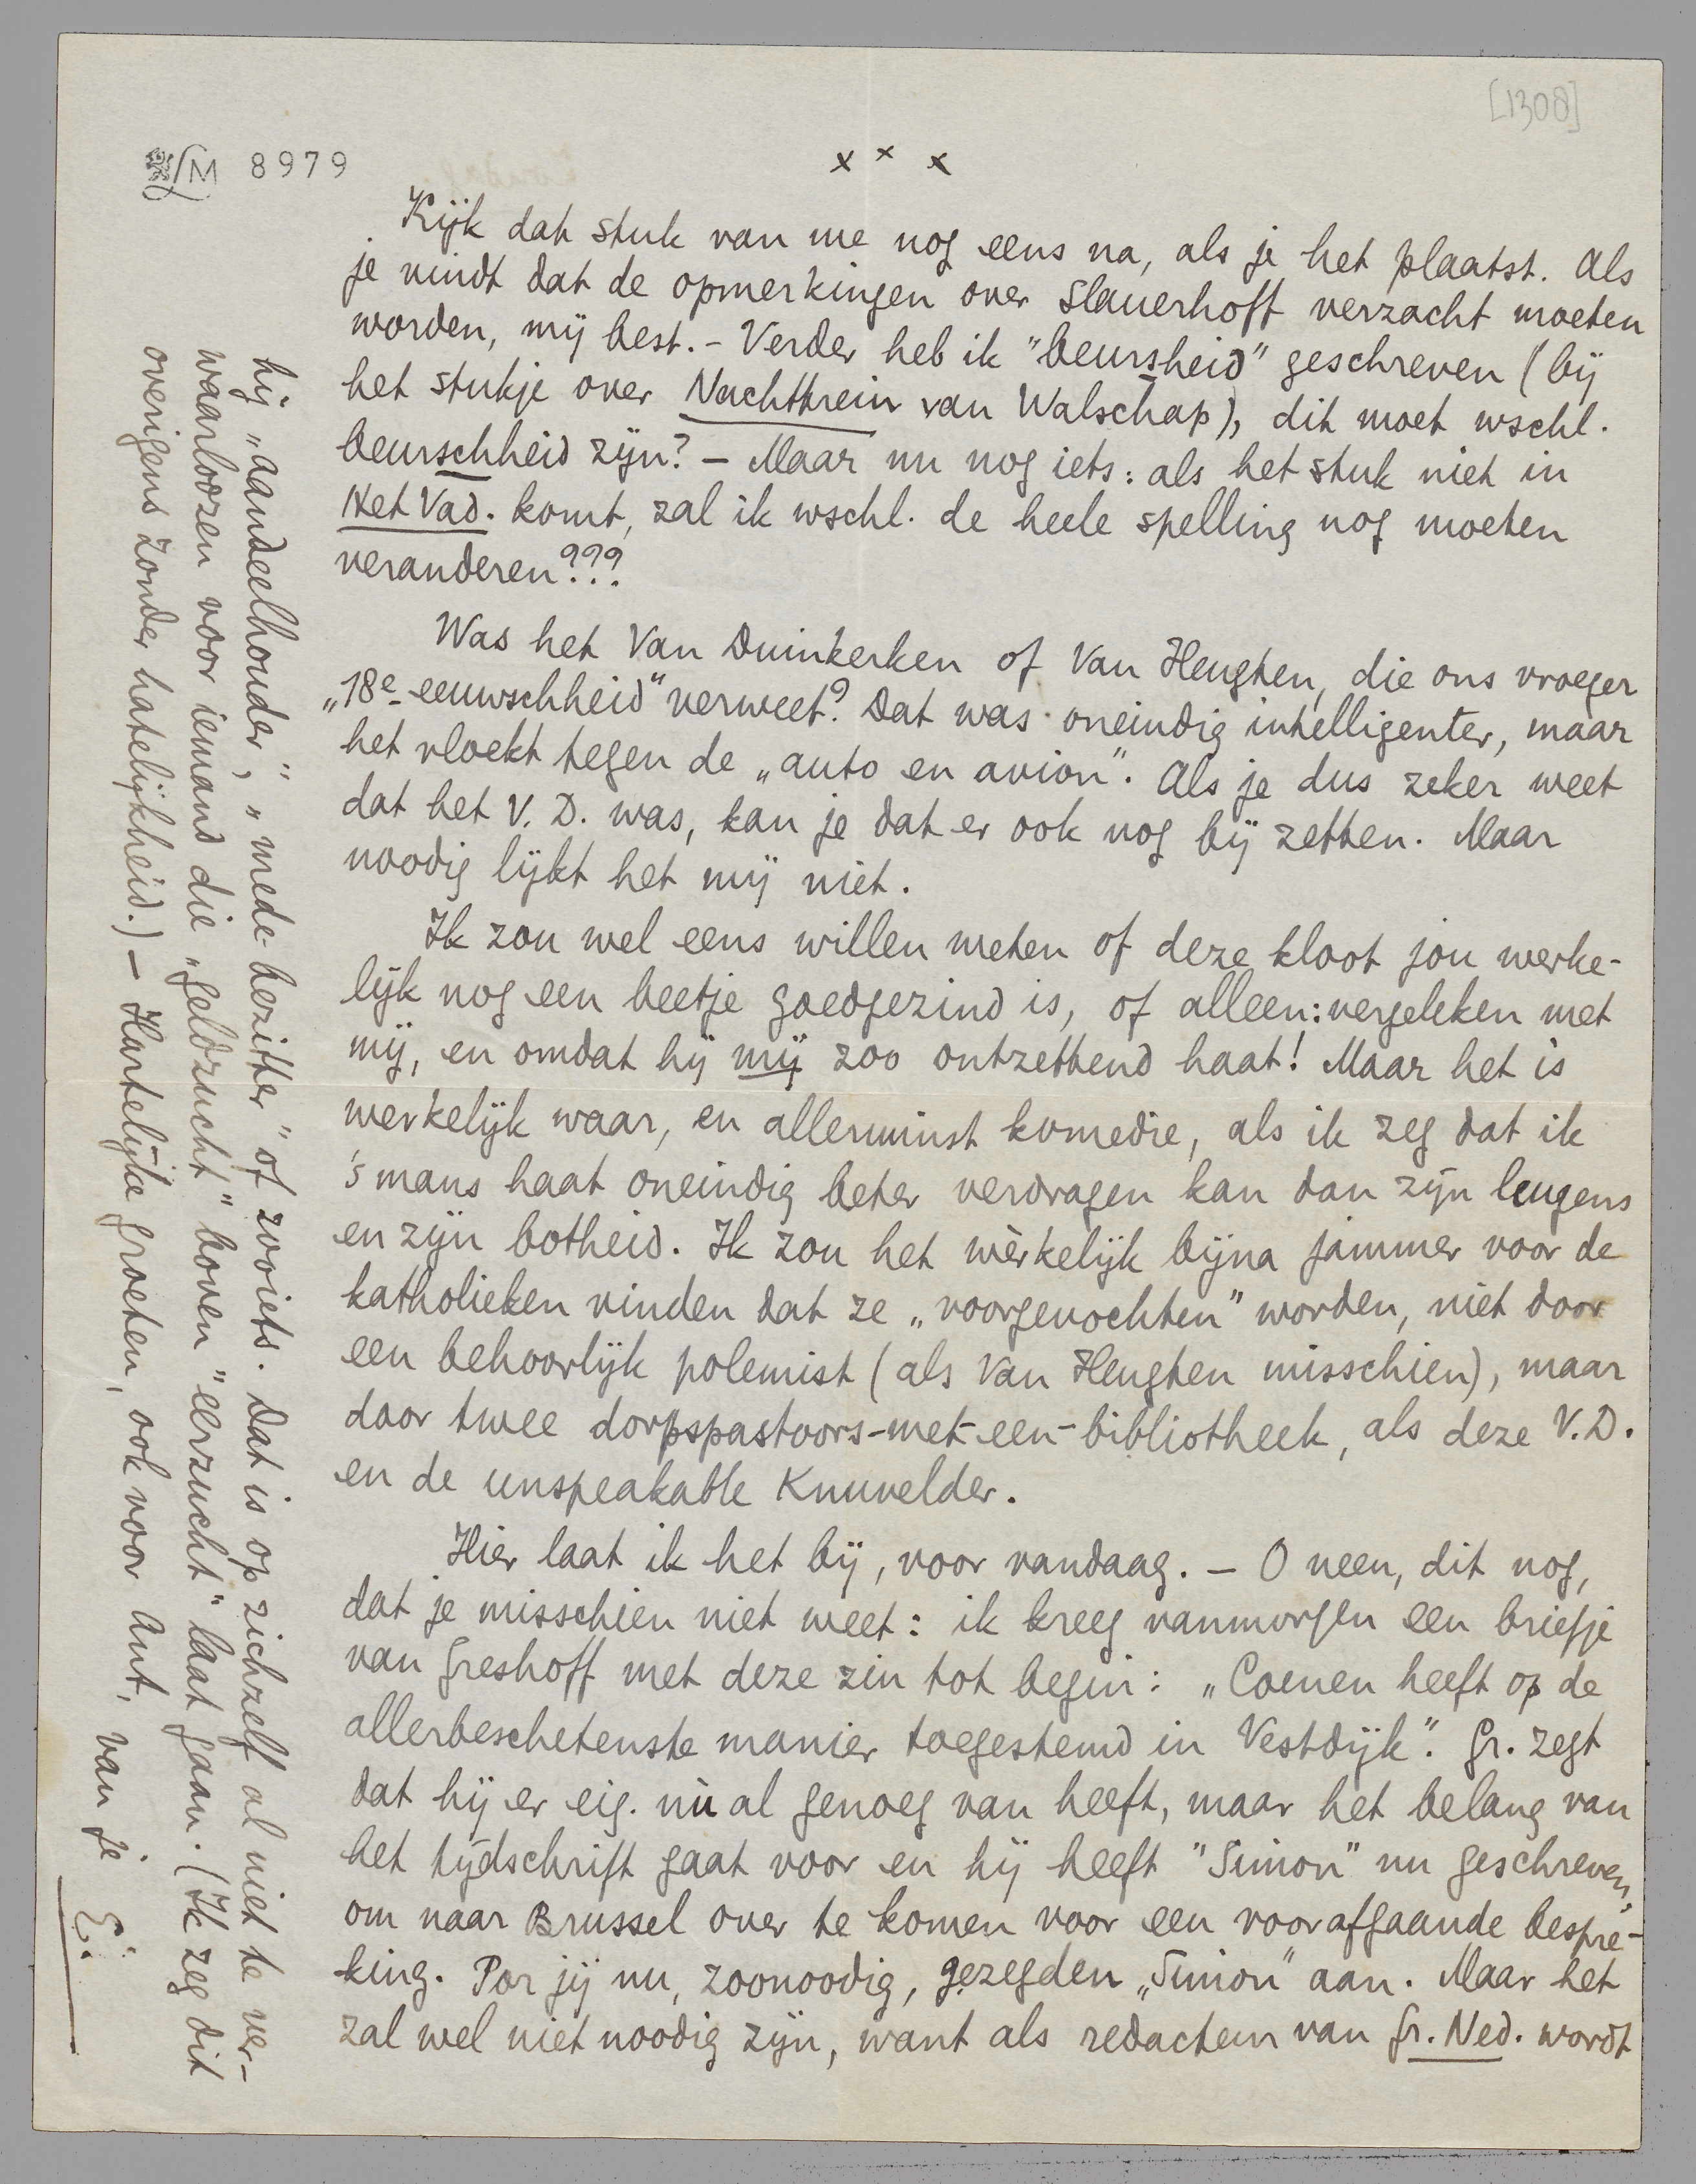 [1308]
LM 8979
x x x
Kijk dat stuk van me nog eens na, als je het plaatst. Als
je vindt dat de opmerkingen over Slauerhoff verzacht moeten
worden, mij best. – Verder heb ik "beursheid" geschreven (bij
het stukje over Nachttrein van Walschap), dit moet wschl.
beurschheid zijn? – Maar nu nog iets: als het stuk niet in
Het Vad. komt, zal ik wschl. de heele spelling nog moeten
veranderen???
Was het Van Duinkerken of Van Heugten, die ons vroeger
„18e-eeuwschheid" verweet? Dat was oneindig intelligenter, maar
het vloekt tegen de „auto en avion". Als je dus zeker weet
dat het V. D. was, kan je dat er ook nog bij zetten. Maar
noodig lijkt het mij niet.
Ik zou wel eens willen weten of deze kloot jou werke-
lijk nog een beetje goedgezind is, of alleen: vergeleken met
mij, en omdat hij mij zoo ontzettend haat! Maar het is
werkelijk waar, en allerminst komedie, als ik zeg dat ik
's mans haat oneindig beter verdragen kan dan zijn leugens
en zijn botheid. Ik zou het wèrkelijk bijna jammer voor de
katholieken vinden dat ze „voorgevochten" worden, niet door
een behoorlijk polemist (als Van Heugten misschien), maar
door twee dorpspastoors-met-een-bibliotheek, als deze V.D.
en de unspeakable Knuvelder.
Hier laat ik het bij, voor vandaag. – O neen, dit nog,
dat je misschien niet weet: ik kreeg vanmorgen een briefje
van Greshoff met deze zin tot begin: „Coenen heeft op de
allerbeschetenste manier toegestemd in Vestdijk". Gr. zegt
dat hij er eig. nù al genoeg van heeft, maar het belang van
het tijdschrift gaat voor en hij heeft "Simon" nu geschreven,
om naar Brussel over te komen voor een voorafgaande bespre-
king. Por jij nu, zoonoodig, gezegden „Simon" aan. Maar het
zal wel niet noodig zijn, want als redacteur van Gr. Ned. wordt
hij „aandeelhouder", „mede-bezitter" of zooiets. Dat is op zichzelf al niet te ver-
waarloozen voor iemand die „geldzucht" boven "eerzucht" laat gaan. (Ik zeg dit
overigens zonder hatelijkheid.) – Hartelijke groeten, ook voor Ant, van je
E.